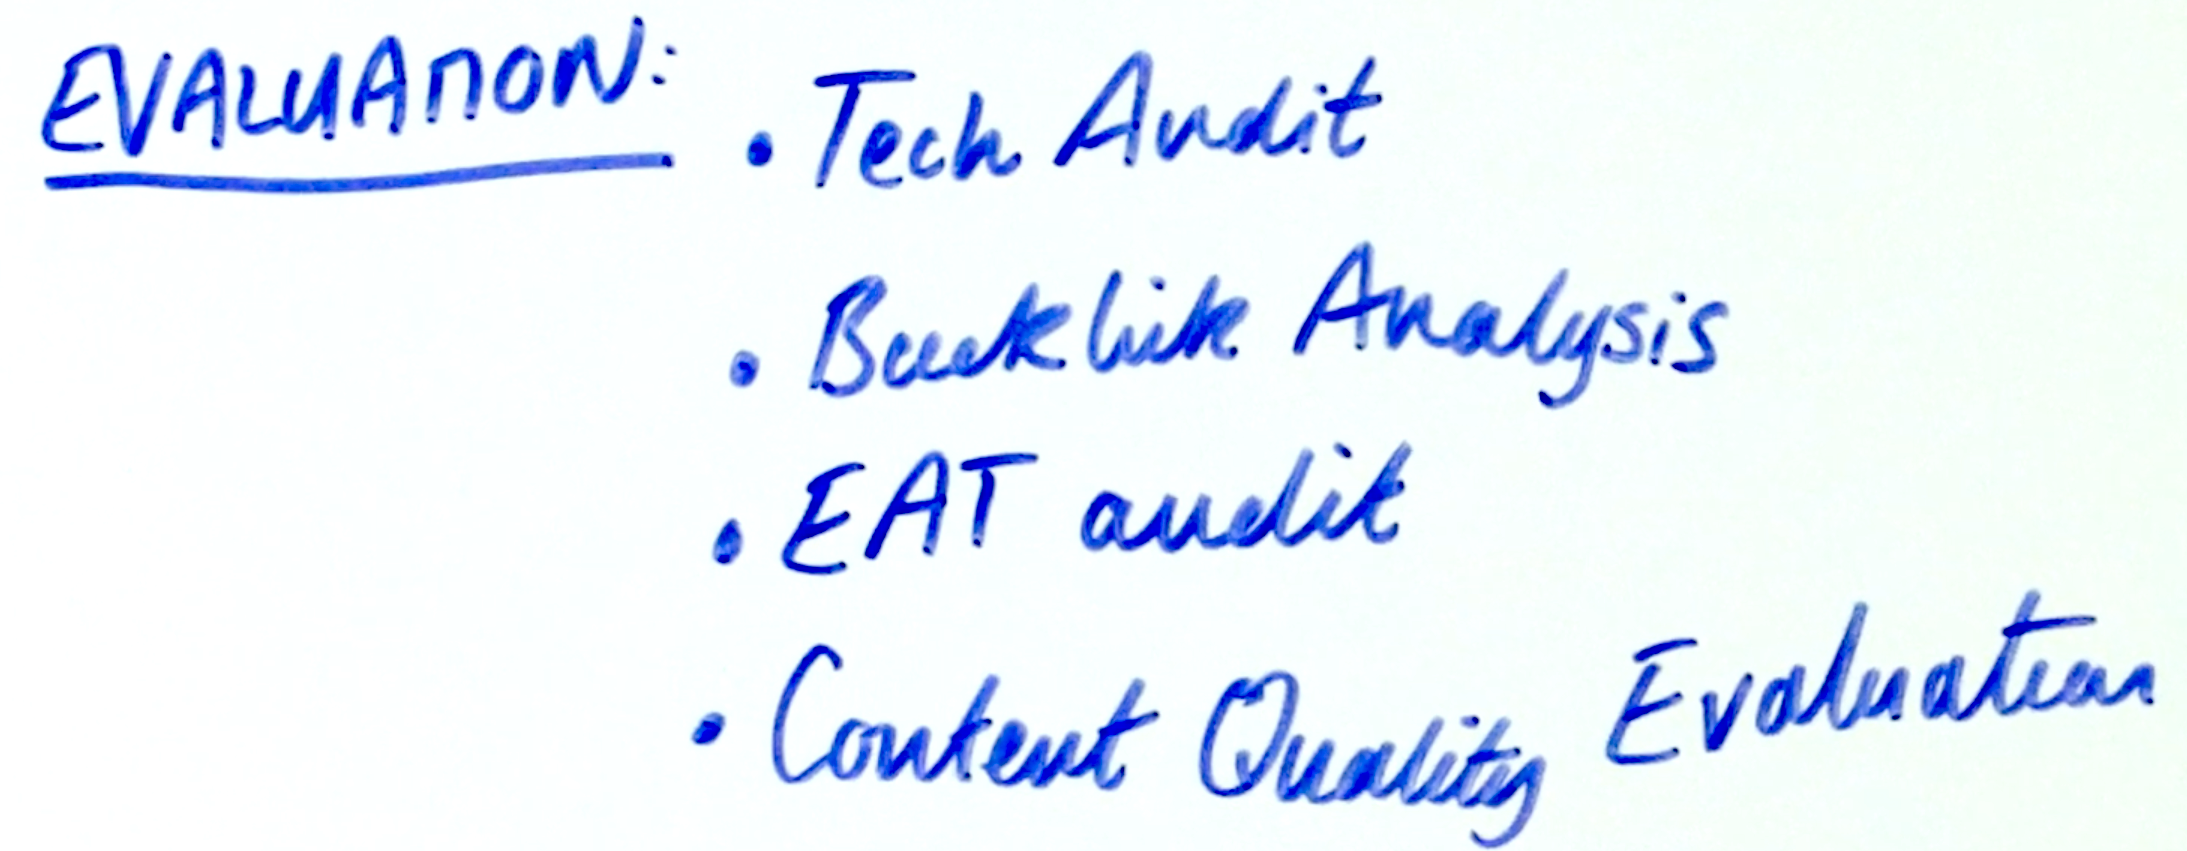 EVALUATION: • Tech Audit
• Backlink Analysis
• EAT audit
• Content Quality Evaluation